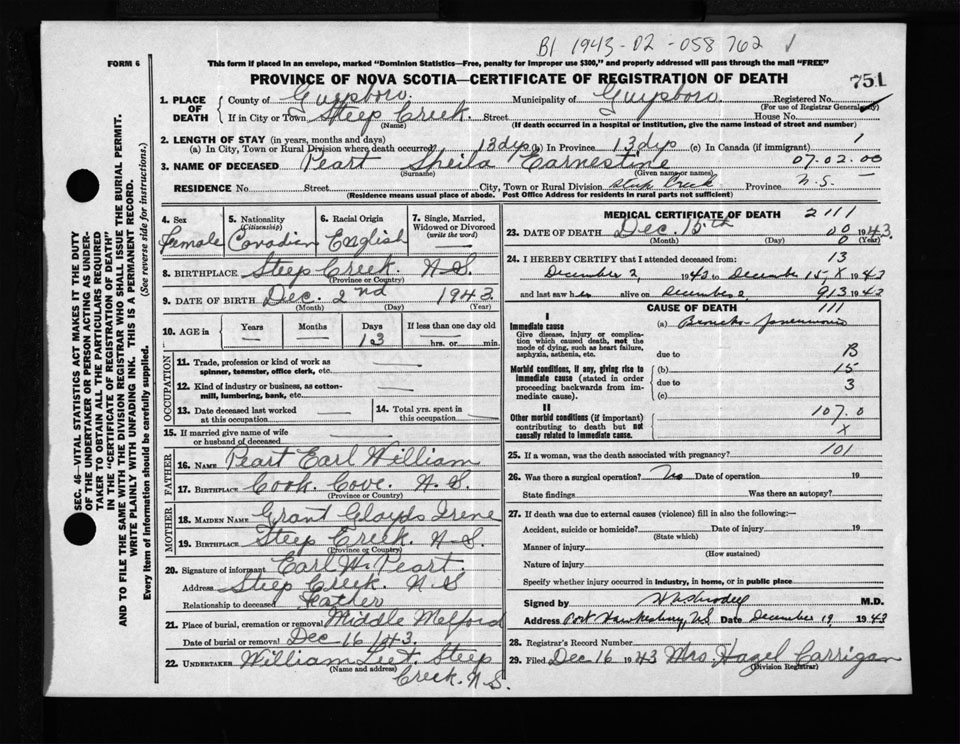 B1 1943-02-058762
FORM 6
This form if placed in an envelope, marked "Dominion Statistics—Free, penalty for improper use $300," and properly addressed will pass through the mail "FREE"
PROVINCE OF NOVA SCOTIA—CERTIFICATE OF REGISTRATION OF DEATH
751
SEC. 46—VITAL STATISTICS ACT MAKES IT THE DUTY
OF THE UNDERTAKER OR PERSON ACTING AS UNDER-
TAKER TO OBTAIN ALL THE PARTICULARS REQUIRED
IN THE "CERTIFICATE OF REGISTRATION OF DEATH"
AND TO FILE THE SAME WITH THE DIVISION REGISTRAR WHO SHALL ISSUE THE BURIAL PERMIT.
WRITE PLAINLY WITH UNFADING INK. THIS IS A PERMANENT RECORD.
Every item of information should be carefully supplied. (See reverse side for instructions.)
1. PLACE OF DEATH
County of Guysboro. Municipality of Guysboro. Registered No.
(For use of Registrar General only)
If in City or Town Steep Creek. Street House No.
(Name) (If death occurred in a hospital or institution, give the name instead of street and number)
2. LENGTH OF STAY (in years, months and days)
(a) In City, Town or Rural Division where death occurred? 13 dys (b) In Province 13 dys (c) In Canada (if immigrant) 1
3. NAME OF DECEASED Peart Sheila Earnestine 07.02.00
(Surname) (Given name or names)
RESIDENCE No. Street City, Town or Rural Division Steep Creek Province N.S.
(Residence means usual place of abode. Post Office Address for residents in rural parts not sufficient)
4. Sex Female
5. Nationality (Citizenship) Canadian
6. Racial Origin English
7. Single, Married, Widowed or Divorced (write the word)
8. BIRTHPLACE Steep Creek. N.S.
(Province or Country)
9. DATE OF BIRTH Dec. 2nd 1943
(Month) (Day) (Year)
10. AGE in Years Months Days 13 If less than one day old hrs. or min.
OCCUPATION
11. Trade, profession or kind of work as
spinner, teamster, office clerk, etc.
12. Kind of industry or business, as cotton-
mill, lumbering, bank, etc.
13. Date deceased last worked at this occupation
14. Total yrs. spent in this occupation
15. If married give name of wife
or husband of deceased
FATHER
16. NAME Peart Earl William
17. BIRTHPLACE Cook. Cove. N.S.
(Province or Country)
MOTHER
18. MAIDEN NAME Grant Gloyds Irene
19. BIRTHPLACE Steep Creek. N.S.
(Province or Country)
20. Signature of informant Earl W. Peart.
Address Steep Creek. N.S
Relationship to deceased Father
21. Place of burial, cremation or removal Middle Melford
Date of burial or removal Dec 16 1943.
22. UNDERTAKER William Leet. Steep
(Name and address)
Creek. N.S.
MEDICAL CERTIFICATE OF DEATH 2111
23. DATE OF DEATH Dec. 15th 00 1943
(Month) (Day) 0 (Year)
24. I HEREBY CERTIFY that I attended deceased from: 13
December 2, 1943 to December 15, X 1943
and last saw her alive on December 2, 913 1943
CAUSE OF DEATH 111
I
Immediate cause (a) Broncho-pneumonia
Give disease, injury or complica-
tion which caused death, not the
mode of dying, such as heart failure,
asphyxia, asthenia, etc. due to B
Morbid conditions, if any, giving rise to (b) 15
immediate cause (stated in order due to 3
proceeding backwards from im-
mediate cause). (c)
II
Other morbid conditions (if important) 107.0
contributing to death but not X
causally related to immediate cause.
25. If a woman, was the death associated with pregnancy? 101
26. Was there a surgical operation? No Date of operation 19
State findings Was there an autopsy?
27. If death was due to external causes (violence) fill in also the following:—
Accident, suicide or homicide? Date of injury 19
(State which)
Manner of injury
(How sustained)
Nature of injury
Specify whether injury occurred in industry, in home, or in public place
Signed by M.D.
Address Port Hawkesbury, N.S. Date December 19 1943
28. Registrar's Record Number
29. Filed Dec 16 1943 Mrs. Hazel Carrigan
(Division Registrar)